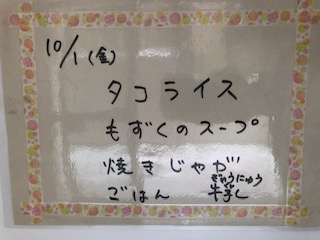 10/1(金)
タコライス
もずくのスープ
焼きじゃが
ぎゅうにゅう
ごはん 牛乳